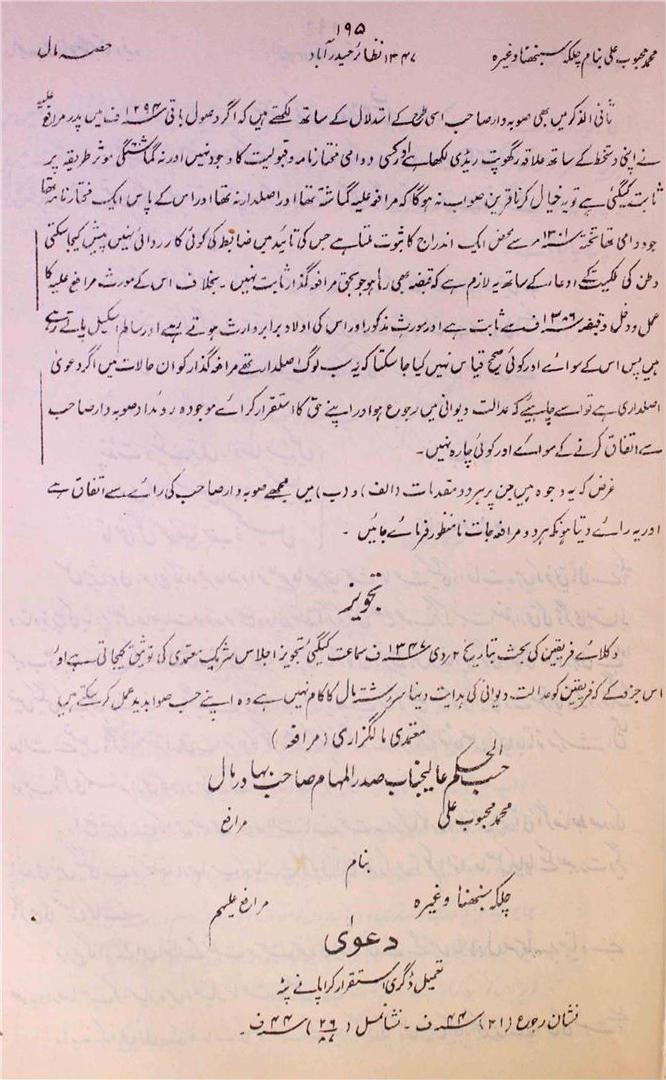 ۱۹۵
محمد محبوب علی بنام چلکہ سبنھنا وغیرہ ۱۳۴۷ نظائر حیدرآباد حصہ مال
ثانی الذکر میں بھی صوبہ دار صاحب اسی طرح کے استدلال کے ساتھ لکھتے ہیں کہ اگر وصول باقی ۱۲۹۴ف میں پدر مرافع علیہ
نے اپنی دستخط کے ساتھ علاقہ رگھوپت ریڈی لکھا ہے اور کسی دوامی مختار نامہ و قبولیت کا وجود نہیں اور نہ گماشتگی موثر طریقہ پر
ثابت کیگئی ہے تو یہ خیال کرنا قرین صواب نہ ہوگا کہ مرافع علیہ گماشتہ تھا اور اصلدار نہ تھا اور اس کے پاس ایک مختار نامہ تھا
جو دوامی تھا تختہ ۱۳۰۱ سے محض ایک اندراج کا ثبوت ملتا ہے جس کی تائید میں ضابطہ کی کوئی کارروائی نہیں پیش کیجا سکتی
وطن کی ملکیت کے ادعاء کے ساتھ یہ لازم ہے کہ قبضہ بھی رہا ہو جو بحق مرافعہ گذار ثابت نہیں ۔ بخلاف اس کے مورث مرافع علیہ کا
عمل و دخل و قبضہ ۱۲۸۶ف سے ثابت ہے اور مورث مذکور اور اس کی اولاد برابر وارث ہوتے رہے اور سالم اسکیل پاتے رہے
ہیں پس اس کے سوائے اور کوئی صحیح قیاس نہیں کیا جا سکتا کہ یہ سب لوگ اصلدار تھے مرافعہ گذار کو ان حالات میں اگر دعویٰ
اصلداری ہے تو اسے چاہئیے کہ عدالت دیوانی میں رجوع ہو اور اپنے حق کا استقرار کرائے موجودہ روئداد صوبہ دار صاحب
سے اتفاق کرنے کے سوائے اور کوئی چارہ نہیں۔
غرض کہ یہ وجوہ ہیں جن پر ہر دو مقدمات (الف) و (ب) میں مجھے صوبہ دار صاحب کی رائے سے اتفاق ہے
اور یہ رائے دیتا ہونکہ ہر دو مرافعہ جات نامنظور فرمائے جائیں ۔
تجویز
وکلائے فریقین کی بحث بتاریخ ۲ردی ۱۳۴۷ف سماعت کیگئی تجویز اجلاس شریک معتمدی کی توثیق کیجاتی ہے
اس جزو کے کہ فریقین کو عدالت دیوانی کی ہدایت دینا سررشتہ مال کا کام نہیں ہے وہ اپنے حسب صوابدید عمل کر سکتے ہیں
معتمدی مالگزاری (مرافعہ)
حسب الحکم عالیجناب صدر المہام صاحب بہادر مال
محمد محبوب علی مرافع
بنام
چلکہ سبنھنا وغیرہ مرافع علیہم
دعویٰ
تعمیل ڈگری استقرار کرا پانے پٹہ
نشان رجوع (۲۱) ۴۴ف ۔ نشانمسل ۴۴ف ۔